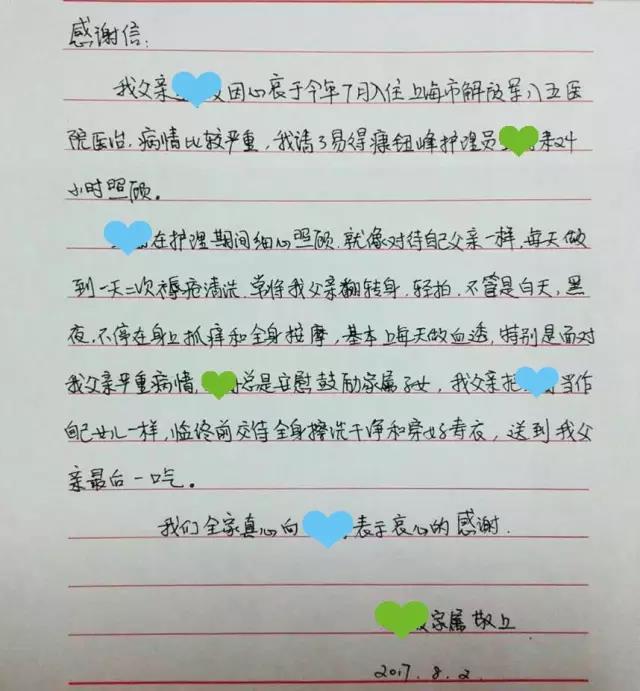 感谢信:
我父亲 因心衰于今年7月入住上海市解放军八五医
院医治,病情比较严重,我请了易得康钮峰护理员 来24
小时照顾。
在护理期间细心照顾,就像对待自己父亲一样,每天做
到一天二次褥疮清洗,常将我父亲翻转身,轻拍,不管是白天,黑
夜,不停在身上抓痒和全身按摩,基本上每天做血透,特别是面对
我父亲严重病情, 总是安慰鼓励家属子女,我父亲把 当作
自己女儿一样,临终前交待全身擦洗干净和穿好寿衣,送到我父
亲最后一口气。
我们全家真心向 表示衷心的感谢.
家属敬上
2017.8.2